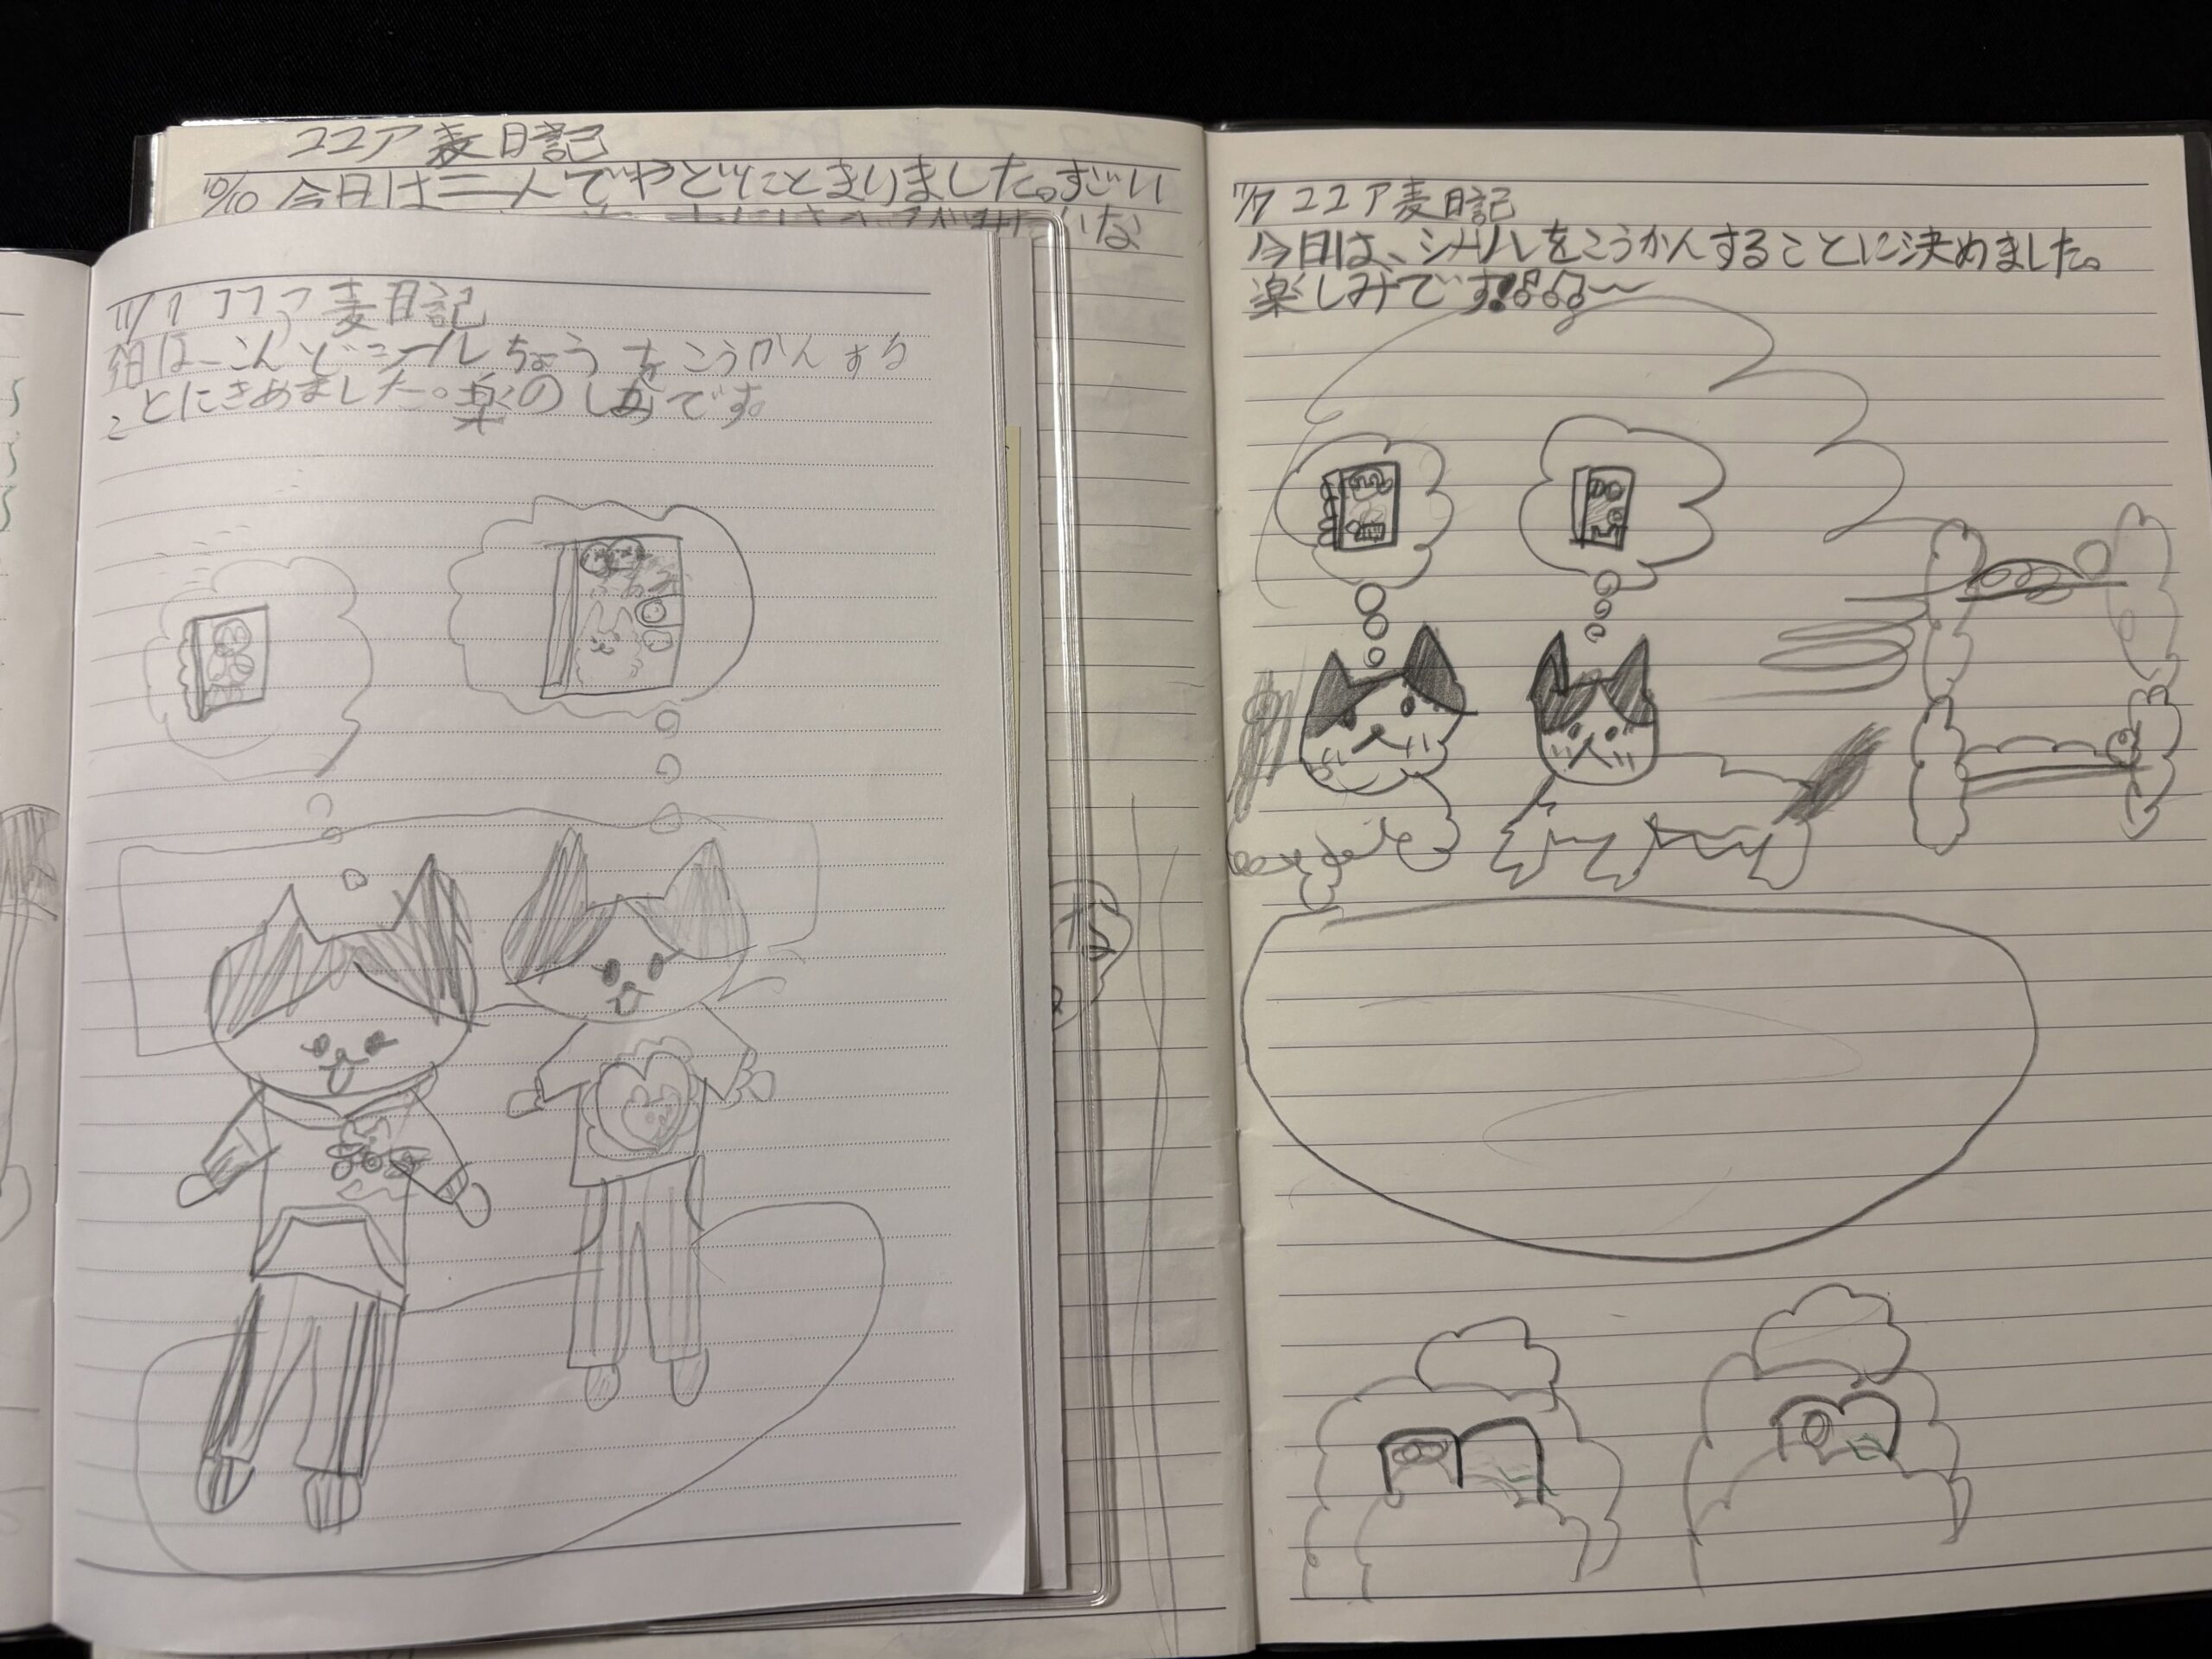 ココア麦日記
10/10 今日は二人でやどにとまりました。すごい
いな
11/7 ココア麦日記
今日は、こんどシールちょうをこうかんする
ことにきめました。楽のしみです。
11/7 ココア麦日記
今日は、シールをこうかんすることに決めました。
楽しみです!